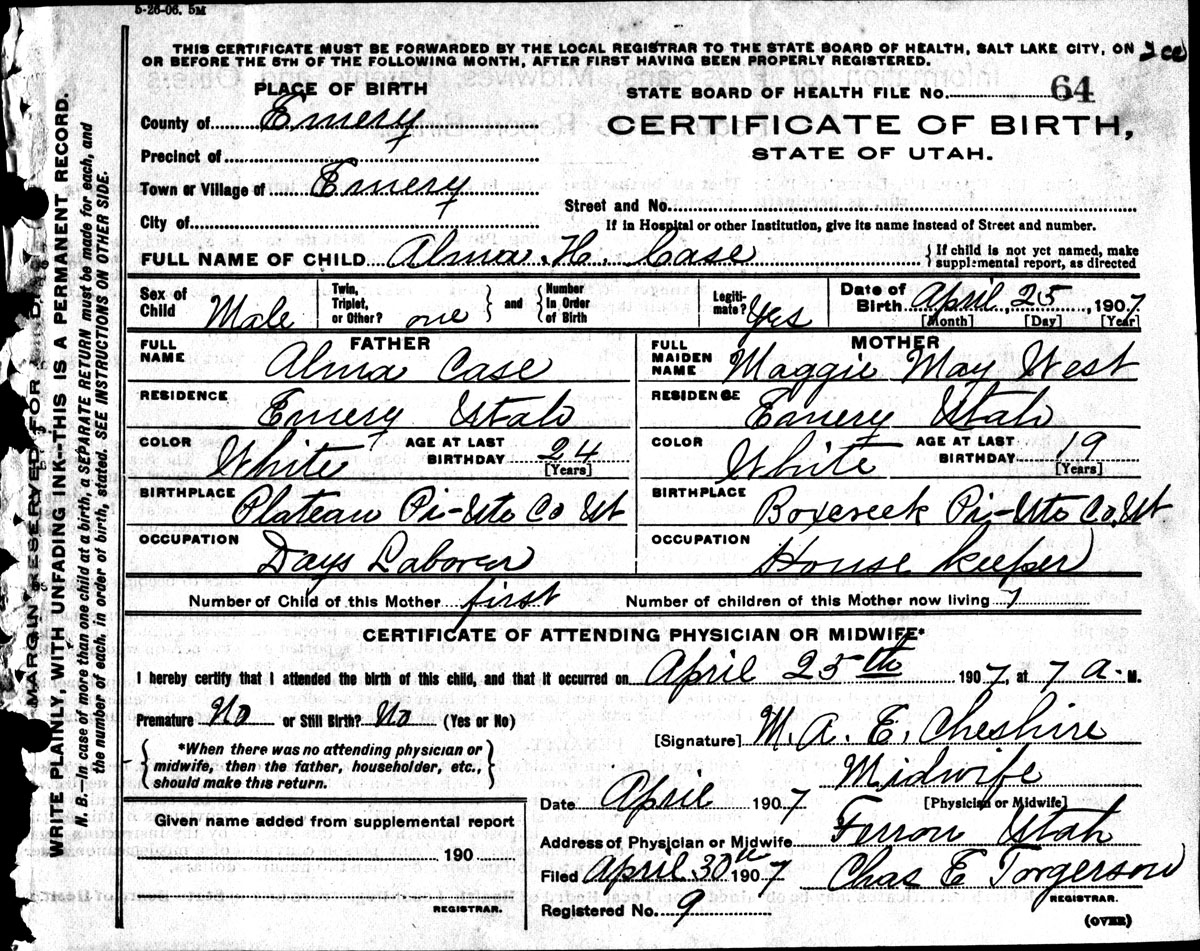 5-26-06. 5M
THIS CERTIFICATE MUST BE FORWARDED BY THE LOCAL REGISTRAR TO THE STATE BOARD OF HEALTH, SALT LAKE CITY, ON
OR BEFORE THE 5TH OF THE FOLLOWING MONTH, AFTER FIRST HAVING BEEN PROPERLY REGISTERED.
PLACE OF BIRTH
STATE BOARD OF HEALTH FILE No. 64
County of Emery
CERTIFICATE OF BIRTH,
Precinct of
STATE OF UTAH.
Town or Village of Emery
Street and No.
City of
If in Hospital or other Institution, give its name instead of Street and number.
FULL NAME OF CHILD Alma. H. Case { If child is not yet named, make supplemental report, as directed
Sex of Child Male
Twin, Triplet, or Other? one } and { Number In Order of Birth
Legiti-mate? Yes
Date of Birth April, 25, 1907
[Month] [Day] [Year]
FATHER
FULL NAME Alma Case
RESIDENCE Emery Utah
COLOR White AGE AT LAST BIRTHDAY 24 [Years]
BIRTHPLACE Plateau Pi-Ute Co Ut
OCCUPATION Days Laborer
MOTHER
FULL MAIDEN NAME Maggie May West
RESIDENCE Emery Utah
COLOR White AGE AT LAST BIRTHDAY 19 [Years]
BIRTHPLACE Boxcreek Pi-Ute Co, Ut
OCCUPATION House keeper
Number of Child of this Mother first Number of children of this Mother now living 1
CERTIFICATE OF ATTENDING PHYSICIAN OR MIDWIFE*
I hereby certify that I attended the birth of this child, and that it occurred on April 25th 1907, at 7 a-M.
Premature No or Still Birth? No (Yes or No)
[Signature] M. A. E. Cheshire
{ *When there was no attending physician or
midwife, then the father, householder, etc.,
should make this return. }
Midwife
[Physician or Midwife]
Date April 1907
Address of Physician or Midwife Ferron Utah
Given name added from supplemental report
190
REGISTRAR.
Filed April 30th 1907 Chas E Torgerson
REGISTRAR.
Registered No. 9
(OVER)
MARGIN RESERVED FOR
WRITE PLAINLY, WITH UNFADING INK--THIS IS A PERMANENT RECORD.
N. B.—In case of more than one child at a birth, a SEPARATE RETURN must be made for each, and
the number of each, in order of birth, stated. SEE INSTRUCTIONS ON OTHER SIDE.